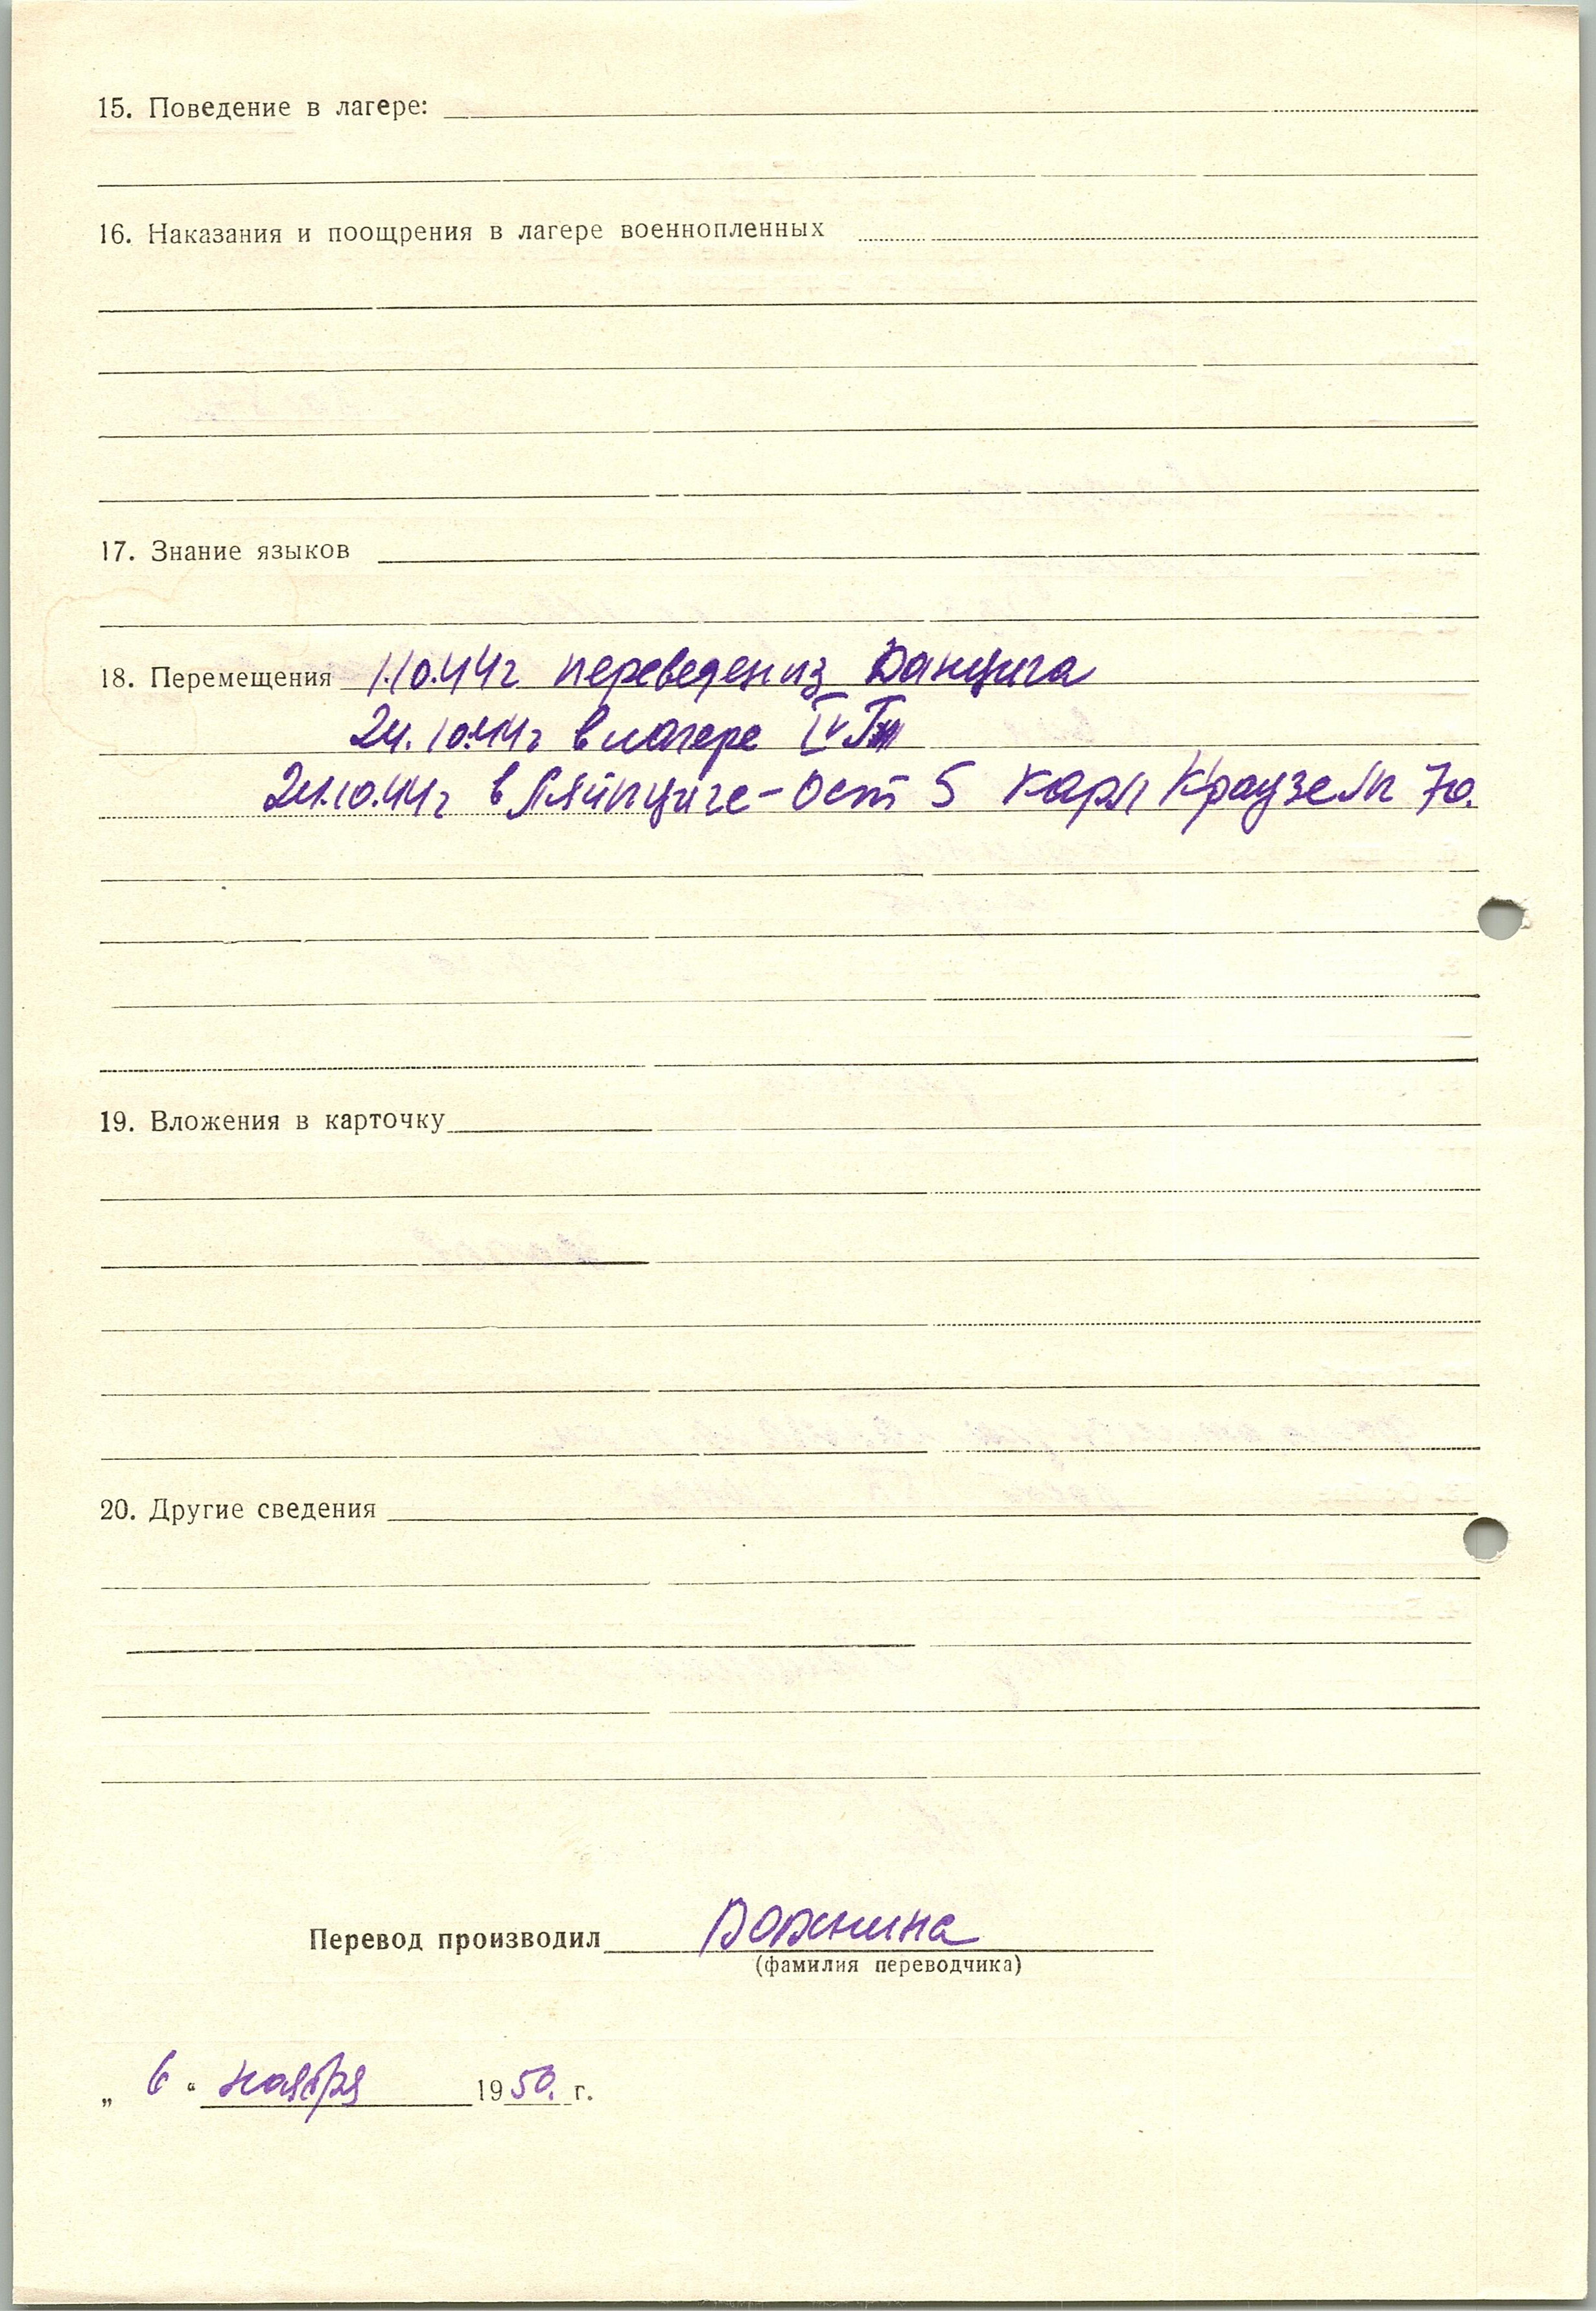 15. Поведение в лагере:
16. Наказания и поощрения в лагере военнопленных
17. Знание языков
18. Перемещения 1.10.44г переведен из Данцига
24.10.44г в лагере IV
24.10.44г в Ляйпциге-Ост 5 Карл Краузе 70.
19. Вложения в карточку
20. Другие сведения
Перевод производил
(фамилия переводчика)
„ 6 “ ноября 1950. г.